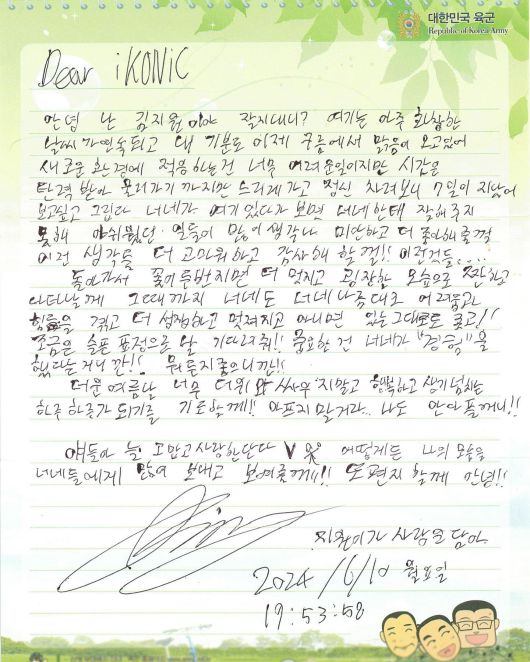 대한민국 육군
Republic of Korea Army
Dear iKONIC
안녕 난 김지원이야 잘지내니? 여기는 아주 화창한
날씨가 연속되고 내 기분도 이제 구름에서 맑음이 오고있어
새로운 환경에 적응하는건 너무 어려운일이지만 시간은
탄력 받아 올라가기 까지만 드리게가고 정신 차려보니 7일이 지났어
보고싶고 그립다 너네가 여기 있다가 보면 너네한테 잘해주지
못해 아쉬웠던 일들이 많이 생각나 미안하고 더 좋아해줄껄
이런 생각들 더 고마워하고 감사해 할껄!! 이런것들....
돌아가서 꽃이 두번지면 더 멋지고 굉장한 모습으로 짠하고
나타날게 그때까지 너네도 너네나름대로 어려움과
힘듦을 겪고 더 성장하고 멋져지고 아니면 있는그대로도 좋고!!
조금은 슬픈 표정으로 날 기다려줘!! 중요한 건 너네가 "경험"을
했다는거니깐!! 뭐든지좋으니깐!!
더운여름날 너무 더위와 싸우지말고 행복하고 생기넘치는
하루하루가 되기를 기도할게!! 아프지말거라.. 나도 안아플게니!!
얘들아 늘 고맙고사랑한단다 V 어떻게든 나의 모습을
너네들에게 많이 보내고 보여줄게!!! 또편지할게 안녕!!
지원이가 사랑을 담아.
2024/6/10 월요일
19:53:58